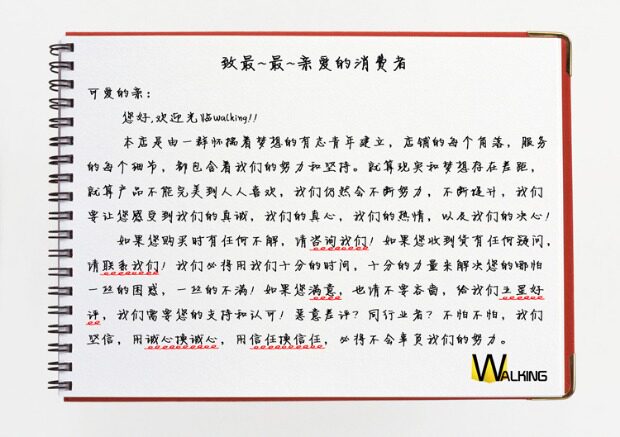 致最~最~亲爱的消费者
可爱的亲：
您好,欢迎光临Walking!!
本店是由一群怀揣着梦想的有志青年建立，店铺的每个角落，服务
的每个细节，都包含着我们的努力和坚持。就算现实和梦想存在差距，
就算产品不能完美到人人喜欢，我们仍然会不断努力，不断提升，我们
要让您感受到我们的真诚，我们的真心，我们的热情，以及我们的决心！
如果您购买时有任何不解，请咨询我们！如果您收到货有任何疑问，
请联系我们！我们必将用我们十分的时间，十分的力量来解决您的哪怕
一丝的困惑，一丝的不满！如果您满意，也请不要吝啬，给我们五星好
评，我们需要您的支持和认可！恶意差评？同行业者？不怕不怕，我们
坚信，用诚心换诚心，用信任换信任，必将不会辜负我们的努力。
WALKING